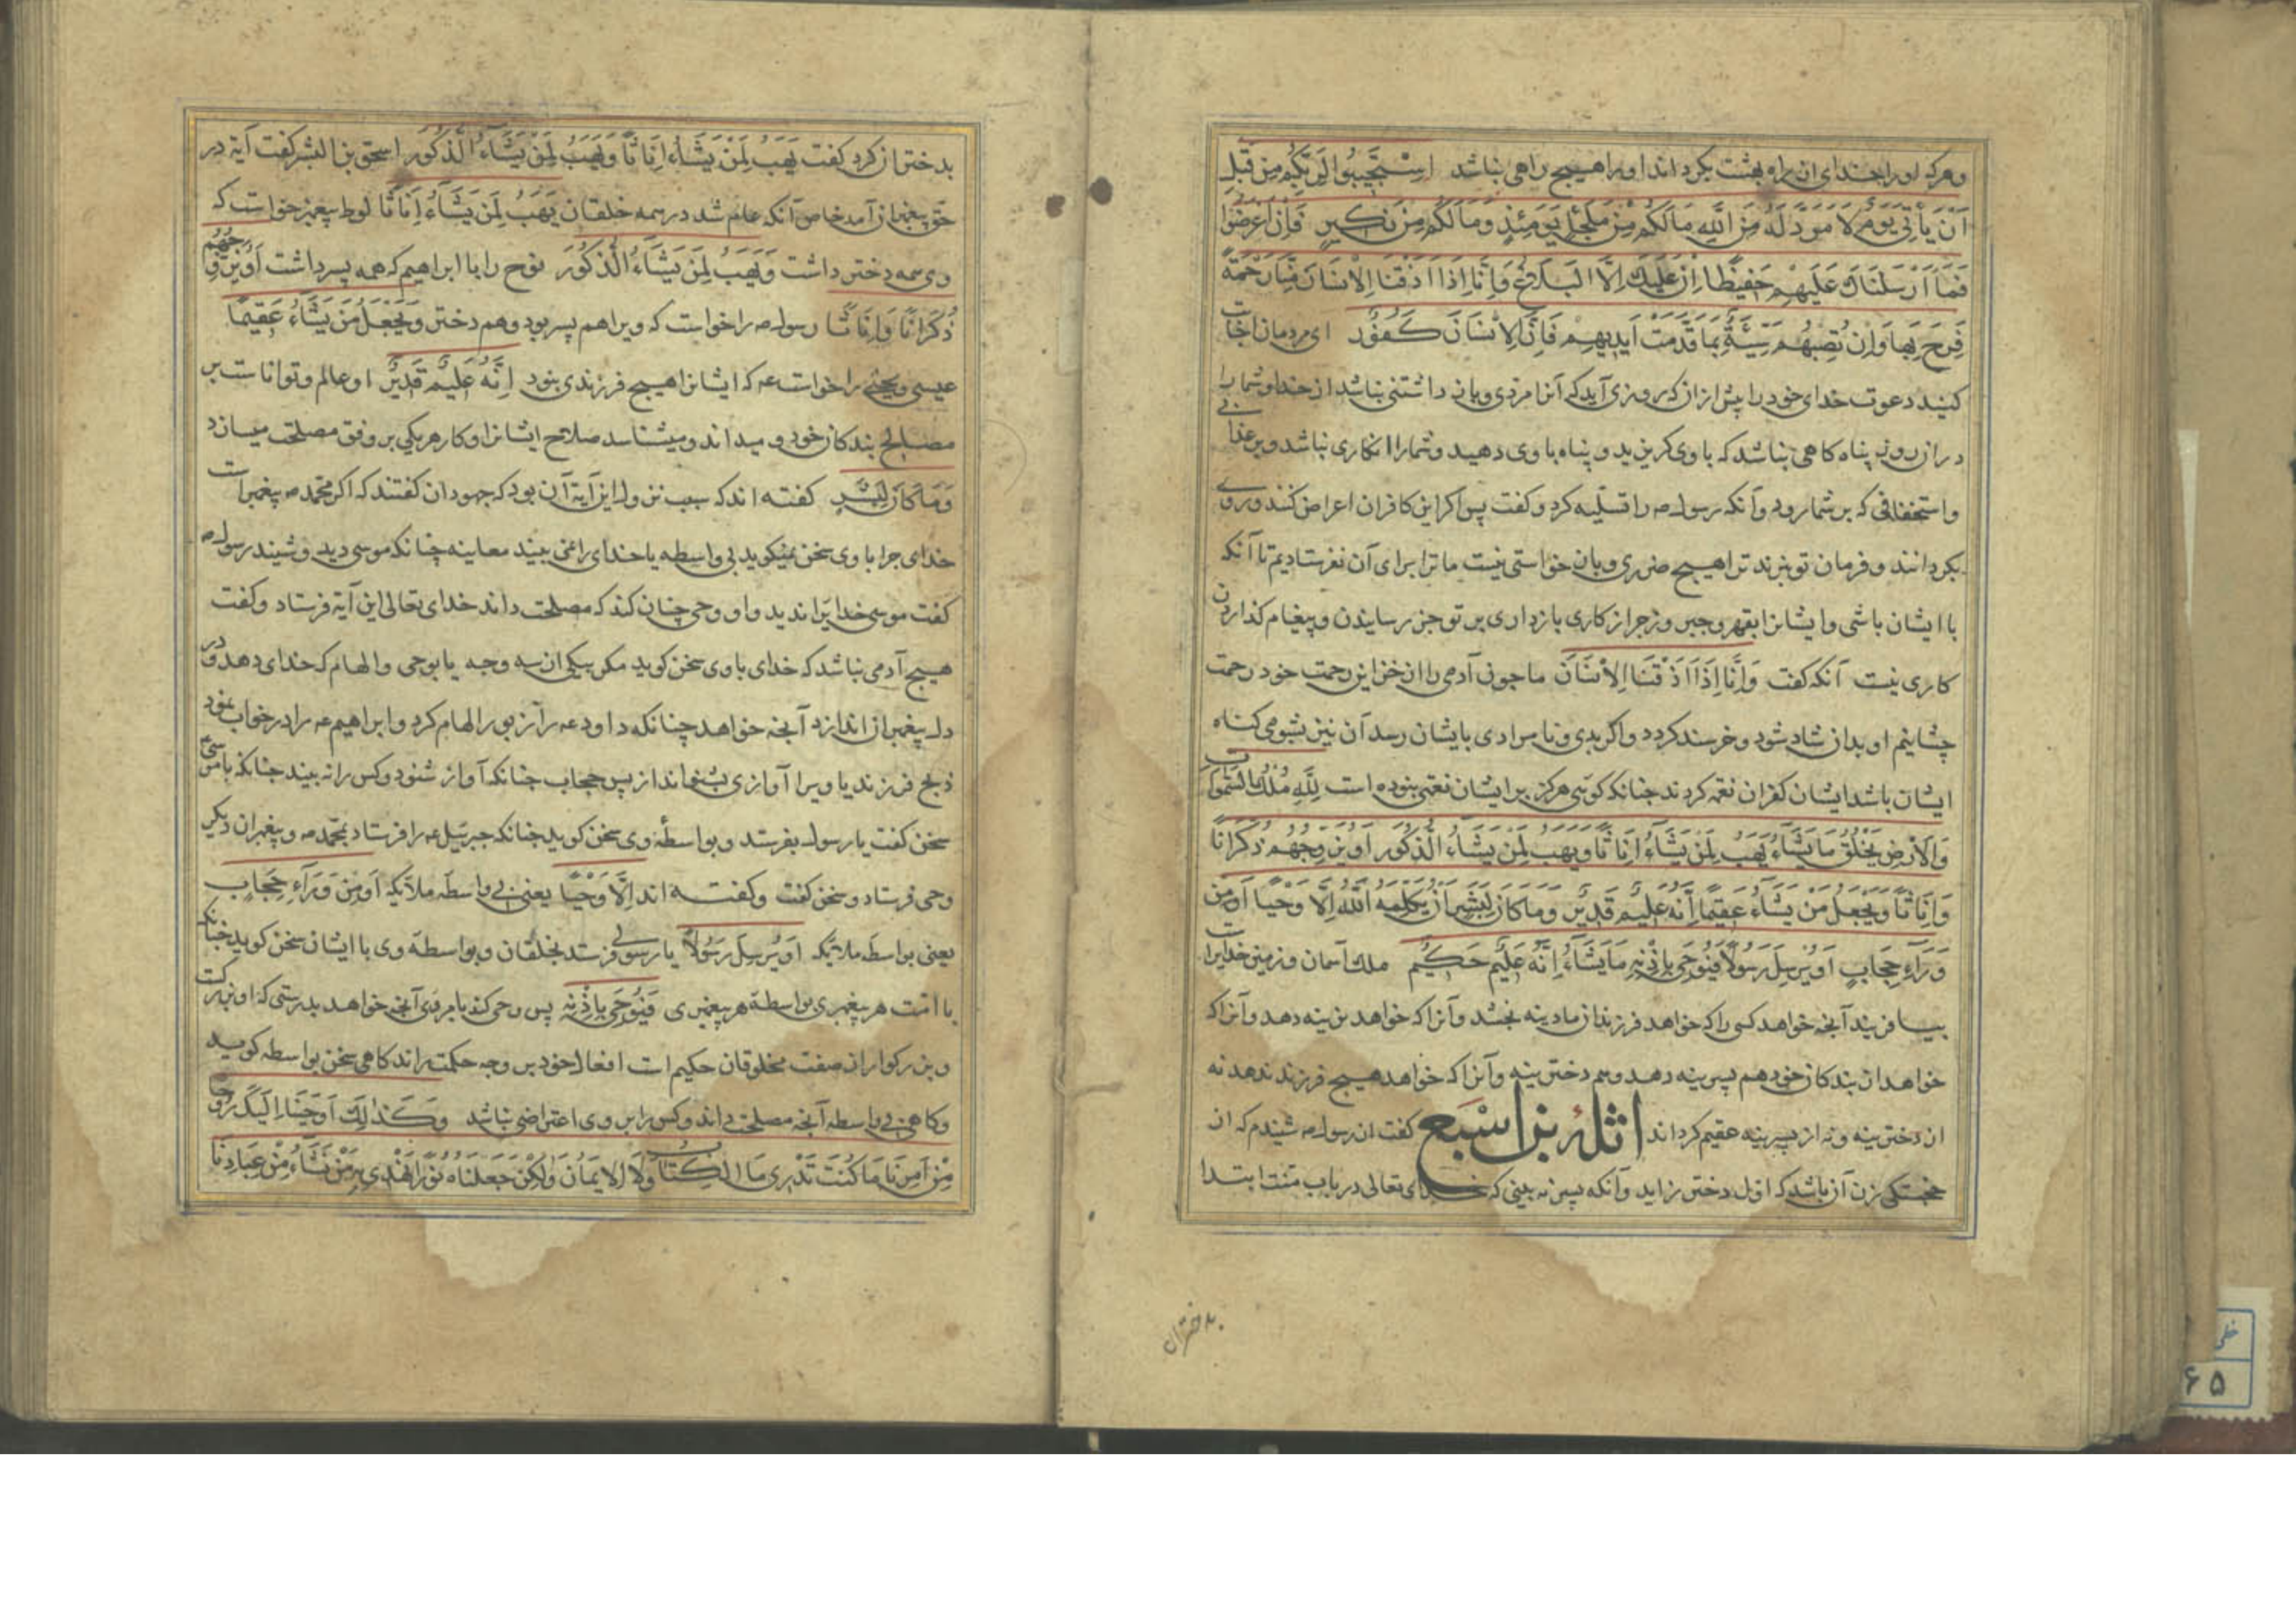 وهرکه اورا خدای از راه بهشت بکرداند اورا هیچ راهی نباشد اِسْتَجِیبُوا لِرَبِّکُمْ مِنْ قَبْلِ
اَنْ یَأْتِیَ یَوْمٌ لَا مَرَدَّ لَهُ مِنَ اللَّهِ مَا لَکُمْ مِنْ مَلْجَإٍ یَوْمَئِذٍ وَمَا لَکُمْ مِنْ نَکِیرٍ فَإِنْ اَعْرَضُوا
فَمَا اَرْسَلْنَاكَ عَلَیْهِمْ حَفِیظًا اِنْ عَلَیْكَ اِلَّا الْبَلَاغُ وَاِنَّا اِذَا اَذَقْنَا الْاِنْسَانَ مِنَّا رَحْمَةً
فَرِحَ بِهَا وَاِنْ تُصِبْهُمْ سَیِّئَةٌ بِمَا قَدَّمَتْ اَیْدِیهِمْ فَاِنَّ الْاِنْسَانَ کَفُورٌ ای مردمان اجابت
کنید دعوت خدای خود را پیش از ان که روزی آید که آنرا مردی وباز داشتنی نباشد از خدا وشما را
در ان روز پناه کاهی نباشد که باوی کریزید و پناه باوی دهید وشمارا انکاری نباشد وبر عذابی
واستخفافی که بر شما رود وآنکه رسول صه را تسلیه کرد وکفت پس اکر این کافران اعراض کنند وروی
بکردانند وفرمان تو نبرند ترا هیچ ضرری وبان خواستی نیست ما ترا برای آن نفرستادیم تا آنکه
با ایشان باشی وایشانرا بقهر وجبر وزجر از کاری بازداری بر تو جز رسانیدن وپیغام کذاردن
کاری نیست آنکه کفت وَاِنَّا اِذَا اَذَقْنَا الْاِنْسَانَ ما چون آدمی را از خزاین رحمت خود رحمت
چشانیم او بدان شاد شود وخرسند کردد واکر بدی ونامرادی بایشان رسد آن نیز بشومی کناه
ایشان باشد ایشان کفران نعمه کردند چنانکه کویی هرکز بر ایشان نعمتی نبوده است لِلَّهِ مُلْكُ السَّمٰوَاتِ
وَالْاَرْضِ یَخْلُقُ مَا یَشَاءُ یَهَبُ لِمَنْ یَشَاءُ اِنَاثًا وَیَهَبُ لِمَنْ یَشَاءُ الذُّکُورَ اَوْ یُزَوِّجُهُمْ ذُکْرَانًا
وَاِنَاثًا وَیَجْعَلُ مَنْ یَشَاءُ عَقِیمًا اِنَّهُ عَلِیمٌ قَدِیرٌ وَمَا کَانَ لِبَشَرٍ اَنْ یُکَلِّمَهُ اللَّهُ اِلَّا وَحْیًا اَوْ مِنْ
وَرَاءِ حِجَابٍ اَوْ یُرْسِلَ رَسُولًا فَیُوحِیَ بِاِذْنِهِ مَا یَشَاءُ اِنَّهُ عَلِیمٌ حَکِیمٌ ملك آسمان وزمین خدایراست
بیافریند آنچه خواهد کسی را که خواهد فرزندان مادینه بخشد وآنرا که خواهد نرینه دهد وآنرا که
خواهد از بندکان خود هم پسرینه دهد وهم دخترینه وآنرا که خواهد هیچ فرزند ندهد نه
از دخترینه ونه از پسرینه عقیم کرداند اثلة بن اسبع کفت از رسول صه شنیدم که از
خجستکی زن آن باشد که اول دختر زاید وآنکه پسر نه بینی که خدای تعالی در باب منت ابتدا
بدختران
بدختران کرد کفت یَهَبُ لِمَنْ یَشَاءُ اِنَاثًا وَیَهَبُ لِمَنْ یَشَاءُ الذُّکُورَ اسحق بن البشر کفت آیة در
حق پیغمبران آمد خاص آنکه عام شد در همه خلقان یَهَبُ لِمَنْ یَشَاءُ اِنَاثًا لوط پیغمبر خواست که
وی همه دختر داشت وَیَهَبُ لِمَنْ یَشَاءُ الذُّکُورَ نوح را با ابراهیم که همه پسر داشت اَوْ یُزَوِّجُهُمْ
ذُکْرَانًا وَاِنَاثًا رسول صه را خواست که ویرا هم پسر بود وهم دختر وَیَجْعَلُ مَنْ یَشَاءُ عَقِیمًا
عیسی ویحیی را خواست عه که ایشانرا هیچ فرزندی نبود اِنَّهُ عَلِیمٌ قَدِیرٌ او عالم وتواناست بر
مصالح بندکان خود ومیداند ومیشناسد صلاح ایشانرا وکار هر یکی بر وفق مصلحت میسازد
وَمَا کَانَ لِبَشَرٍ کفته اند که سبب نزول این آیة آن بود که جهودان کفتند که اکر محمد صه پیغمبر است
خدای چرا باوی سخن نمیکوید بی واسطه یا خدای را نمی بیند معاینه چنانکه موسی دید وشنید رسول صه
کفت موسی خدایرا ندید واو وحی چنان کند که مصلحت داند خدای تعالی این آیة فرستاد وکفت
هیچ آدمی نباشد که خدای باوی سخن کوید مکر بیکی از سه وجه یا بوحی والهام که خدای دهد ودر
دل پیغمبران اندازد آنچه خواهد چنانکه داود عه را زبور الهام کرد وابراهیم عه را در خواب نمود
ذبح فرزند یا ویرا آوازی بشنواند از پس حجاب چنانکه آواز شنود وکس را نه بیند چنانکه با موسی
سخن کفت یا رسول بفرستد وبواسطهٔ وی سخن کوید چنانکه جبرئیل عه را فرستاد بمحمد صه وپیغمبران دیکر
وحی فرستاد وسخن کفت وکفته اند اِلَّا وَحْیًا یعنی بی واسطه ملائکه اَوْ مِنْ وَرَاءِ حِجَابٍ
یعنی بواسطه ملائکه اَوْ یُرْسِلَ رَسُولًا یا رسولی فرستد بخلقان وبواسطه وی با ایشان سخن کوید چنانکه
با امت هر پیغمبری بواسطه هر پیغمبری فَیُوحِیَ بِاِذْنِهِ پس وحی کند بامر وی آنچه خواهد بدرستی که او برتر است
وبزرکوار از صفت مخلوقان حکیم است افعال خود بر وجه حکمت راند کاهی سخن بواسطه کوید
وکاهی بی واسطه آنچه مصلحت داند وکس را بر وی اعتراضی نباشد وَکَذٰلِكَ اَوْحَیْنَا اِلَیْكَ رُوحًا
مِنْ اَمْرِنَا مَا کُنْتَ تَدْرِی مَا الْکِتَابُ وَلَا الْاِیمَانُ وَلٰکِنْ جَعَلْنَاهُ نُورًا نَهْدِی بِهِ مَنْ نَشَاءُ مِنْ عِبَادِنَا
۶۵